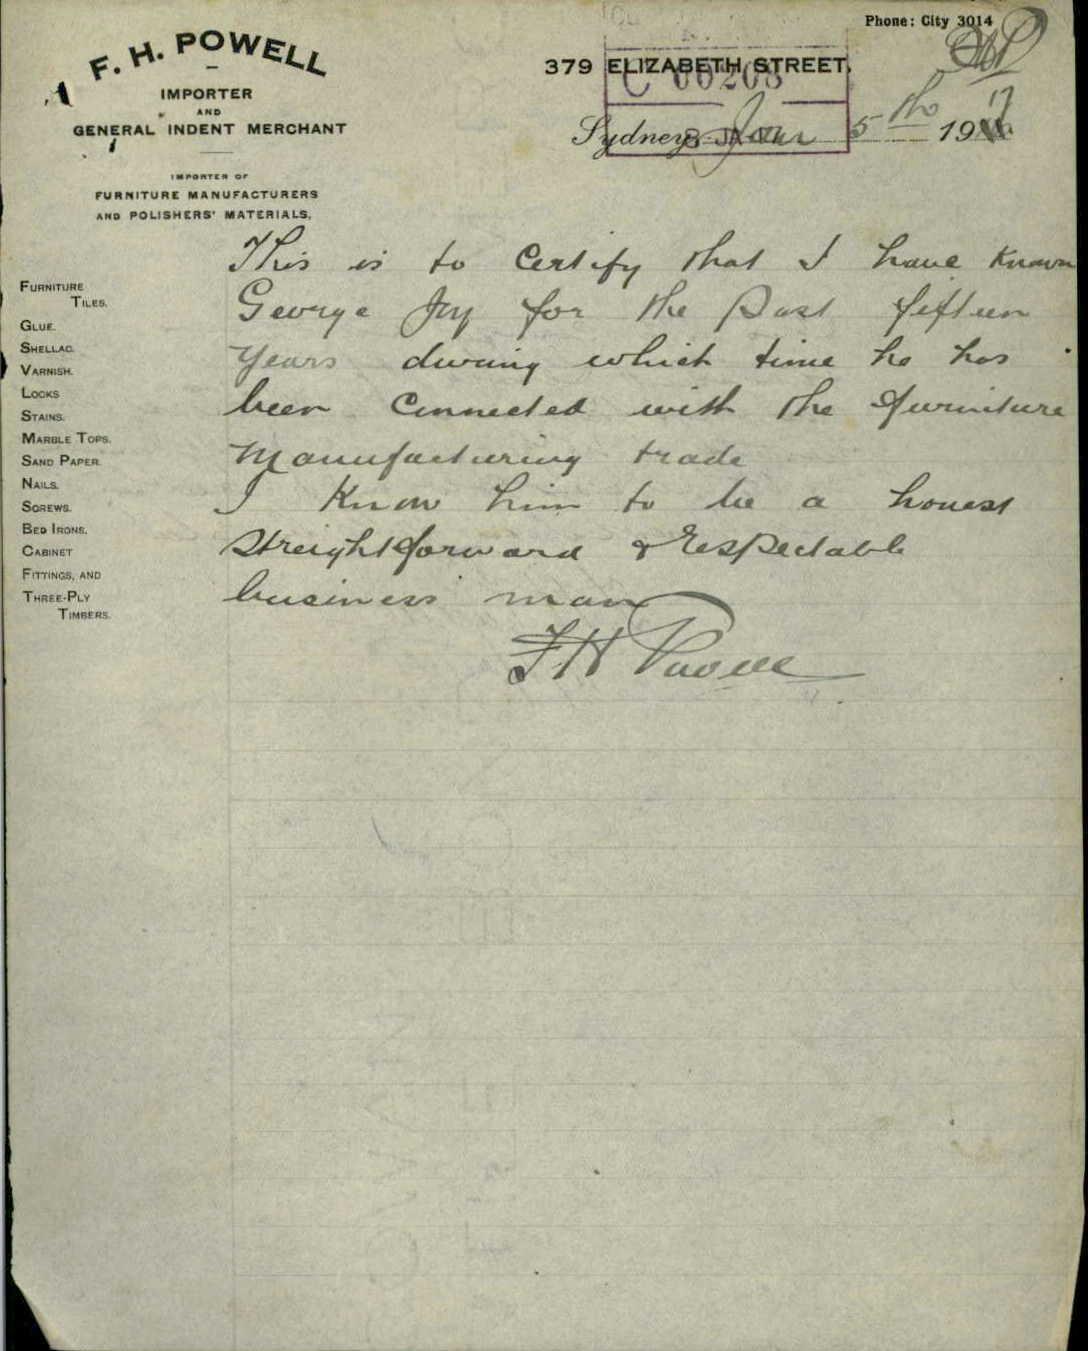 Phone: City 3014
F. H. POWELL
IMPORTER
AND
GENERAL INDENT MERCHANT
IMPORTER OF
FURNITURE MANUFACTURERS
AND POLISHERS' MATERIALS.
379 ELIZABETH STREET,
C 00208
Sydney Jan 5th 1917
FURNITURE
TILES.
GLUE.
SHELLAC.
VARNISH.
LOCKS
STAINS.
MARBLE TOPS.
SAND PAPER.
NAILS.
SCREWS.
BED IRONS.
CABINET
FITTINGS, AND
THREE-PLY
TIMBERS.
This is to Certify that I have Known
George Joy for the Past fifteen
Years during which time he has
been Connected with the Furniture
Manufacturing trade
I Know him to be a honest
Streightforward & Respectable
business man
F.H Powell